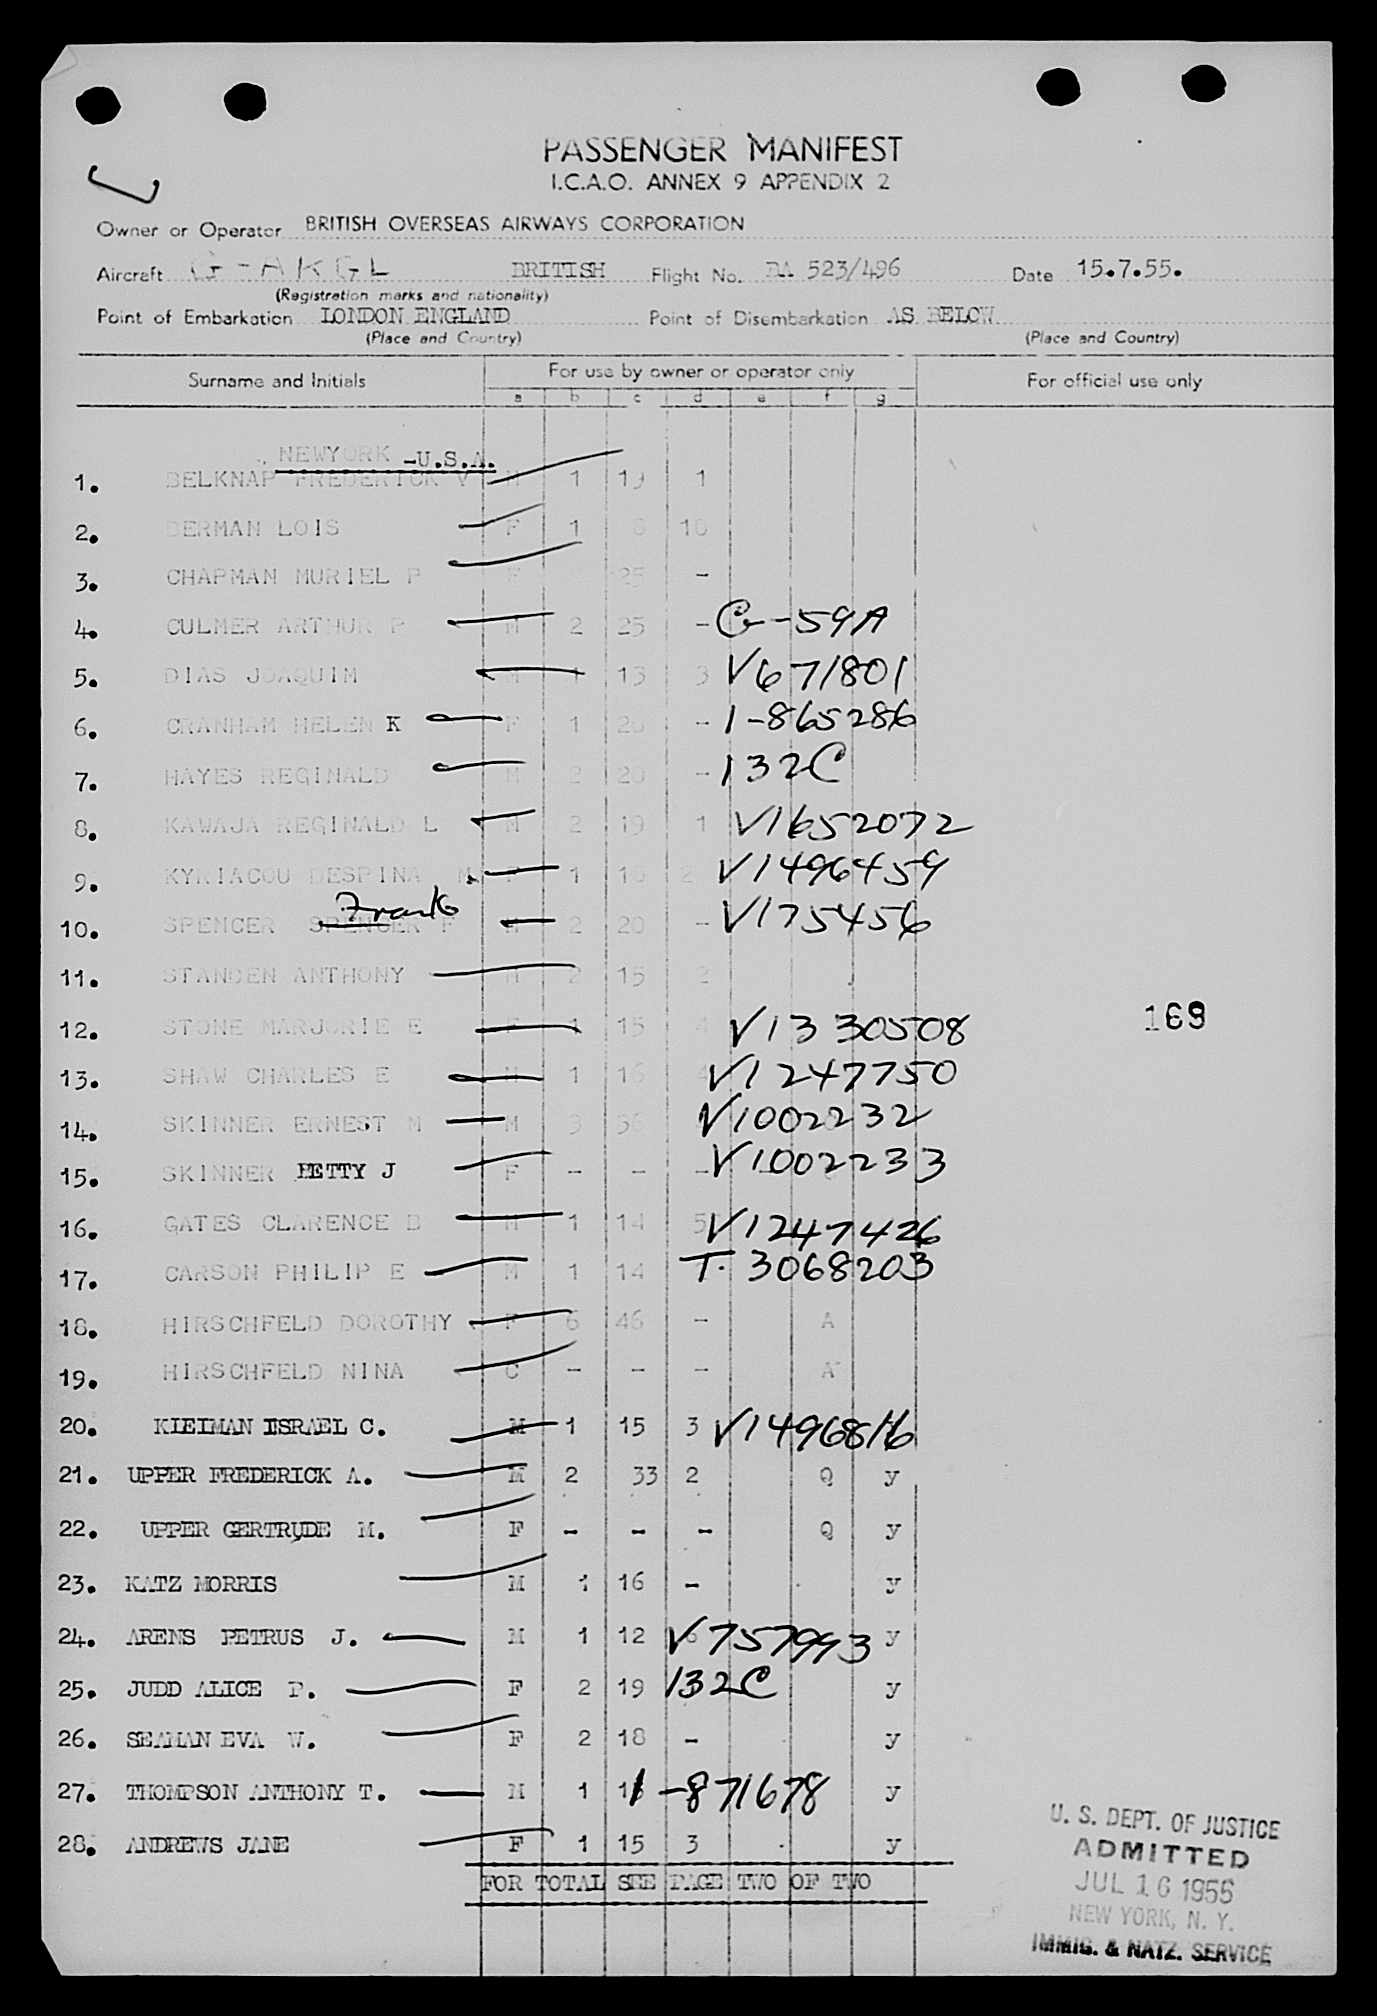 PASSENGER MANIFEST
I.C.A.O. ANNEX 9 APPENDIX 2
Owner or Operator BRITISH OVERSEAS AIRWAYS CORPORATION
Aircraft G-AKGL BRITISH Flight No. BA 523/496 Date 15.7.55.
(Registration marks and nationality)
Point of Embarkation LONDON ENGLAND Point of Disembarkation AS BELOW
(Place and Country) (Place and Country)
Surname and Initials For use by owner or operator only For official use only
a b c d e f g
NEWYORK -U.S.A.
1. BELKNAP FREDERICK V M 1 19 1
2. BERMAN LOIS F 1 10
3. CHAPMAN MURIEL P F 25 -
4. CULMER ARTHUR P M 2 25 - G-59A
5. DIAS JOAQUIM M 1 13 3 V671801
6. CRANHAM HELEN K F 1 20 - 1-865286
7. HAYES REGINALD M 2 20 - 132C
8. KAWAJA REGINALD L M 2 19 1 V1652072
9. KYRIACOU DESPINA N. F 1 16 2 V1496459
Frank
10. SPENCER SPENCER F M 2 20 - V175456
11. STANDEN ANTHONY M 2 15 2
12. STONE MARJORIE E F 1 15 4 V1330508
169
13. SHAW CHARLES E M 1 16 4 V1247750
14. SKINNER ERNEST M M 3 36 V1002232
15. SKINNER HETTY J F - - - V1002233
16. GATES CLARENCE B M 1 14 5 V1247426
17. CARSON PHILIP E M 1 14 T. 3068203
18. HIRSCHFELD DOROTHY F 6 46 - A
19. HIRSCHFELD NINA C - - - A
20. KLEIMAN ISRAEL C. M 1 15 3 V1496816
21. UPPER FREDERICK A. M 2 33 2 Q y
22. UPPER GERTRUDE M. F - - - Q y
23. KATZ MORRIS M 1 16 - y
24. ARENS PETRUS J. M 1 12 6 V757993 y
25. JUDD ALICE P. F 2 19 132C y
26. SEAMAN EVA W. F 2 18 - y
27. THOMPSON ANTHONY T. M 1 1-871678 y
28. ANDREWS JANE F 1 15 3 y
FOR TOTAL SEE PAGE TWO OF TWO
U. S. DEPT. OF JUSTICE
ADMITTED
JUL 16 1955
NEW YORK, N. Y.
IMMIG. & NATZ. SERVICE